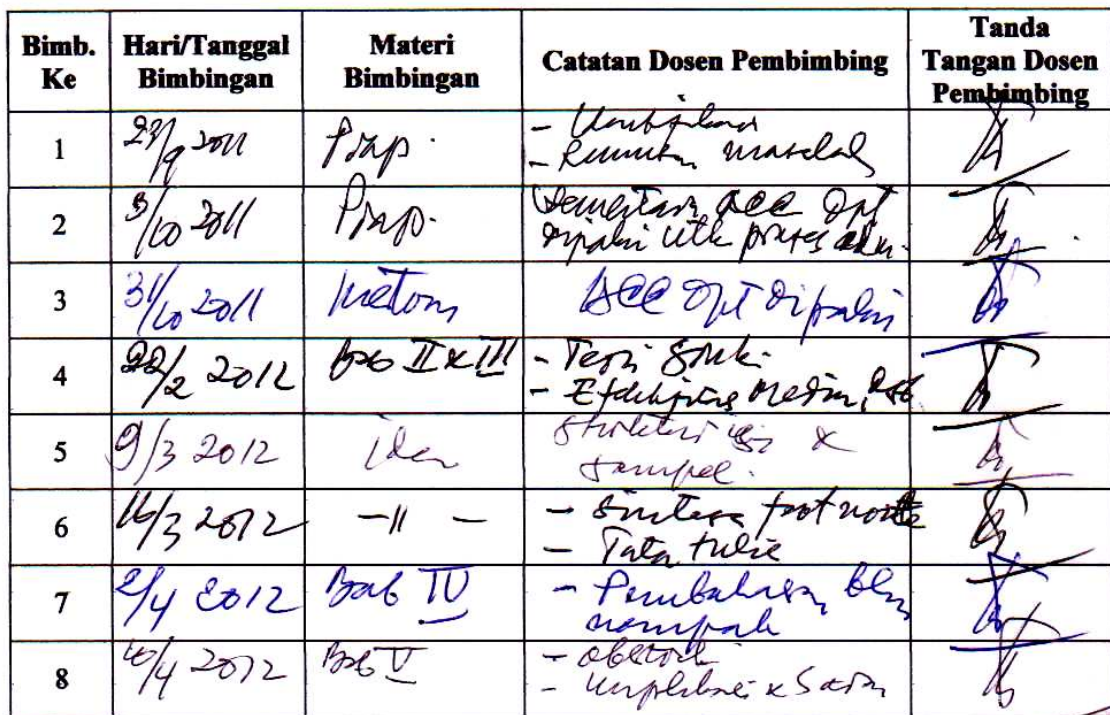 Bimb. Ke
Hari/Tanggal Bimbingan
Materi Bimbingan
Catatan Dosen Pembimbing
Tanda Tangan Dosen Pembimbing
1
23/9 2011
Prap.
- Rumusan masalah
2
3/10 2011
Prap.
Sementara ACC Dpt
dipakai utk proses
3
31/10 2011
ACC Dpt Dipakai
4
22/2 2012
Bab II & III
- Teori
- Media,
5
9/3 2012
Idem
isi &
sampel.
6
16/3 2012
-〃-
- Sintesa foot note
- Tata tulis
7
2/4 2012
Bab IV
- Pembahasan blm
nampak
8
/4 2012
Bab V
- Abstrak
- Implikasi & Saran